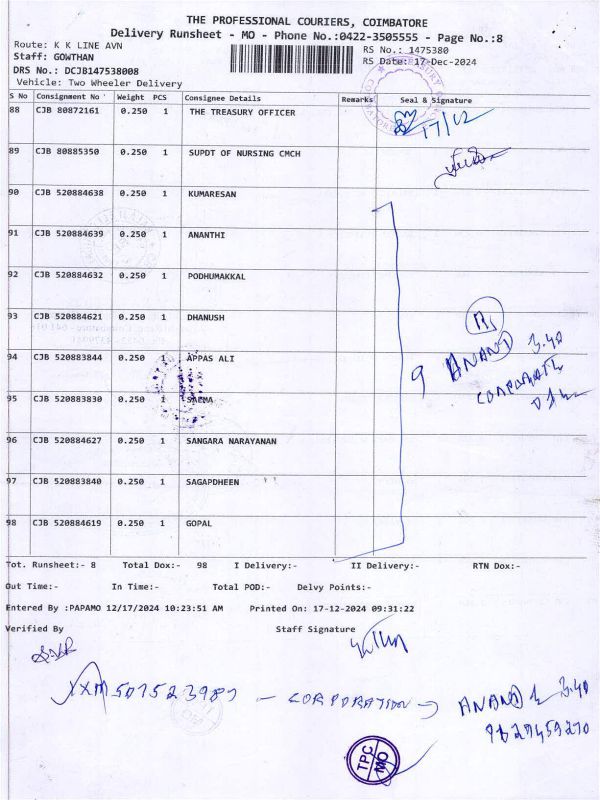 THE PROFESSIONAL COURIERS, COIMBATORE
Delivery Runsheet - MO - Phone No.:0422-3505555 - Page No.:8
Route: K K LINE AVN
RS No.: 1475380
Staff: GOWTHAN
RS Date: 17-Dec-2024
DRS No.: DCJB147538008
Vehicle: Two Wheeler Delivery
S No Consignment No Weight PCS Consignee Details Remarks Seal & Signature
88 CJB 80872161 0.250 1 THE TREASURY OFFICER
17/12
89 CJB 80885350 0.250 1 SUPDT OF NURSING CMCH
90 CJB 520884638 0.250 1 KUMARESAN
91 CJB 520884639 0.250 1 ANANTHI
92 CJB 520884632 0.250 1 PODHUMAKKAL
93 CJB 520884621 0.250 1 DHANUSH
94 CJB 520883844 0.250 1 APPAS ALI
9 ANAND 3.40
95 CJB 520883830 0.250 1 SALMA
96 CJB 520884627 0.250 1 SANGARA NARAYANAN
97 CJB 520883840 0.250 1 SAGAPDHEEN
98 CJB 520884619 0.250 1 GOPAL
Tot. Runsheet:- 8 Total Dox:- 98 I Delivery:- II Delivery:- RTN Dox:-
Out Time:- In Time:- Total POD:- Delvy Points:-
Entered By :PAPAMO 12/17/2024 10:23:51 AM Printed On: 17-12-2024 09:31:22
Verified By Staff Signature
CORPORATION ANAND 3.40
TPC MO